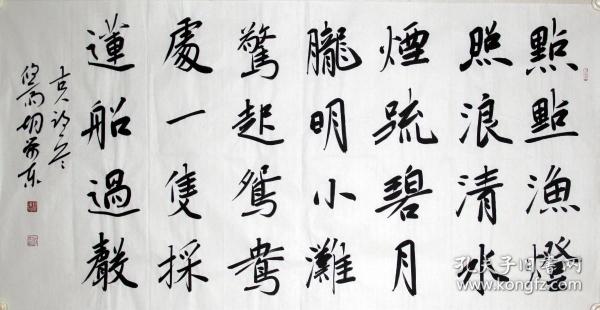 點點漁燈
照浪清水
煙疏碧月
朧明小灘
驚起鴛鴦
處一隻採
蓮船過聲
孔夫子旧书网
www.kongfz.com